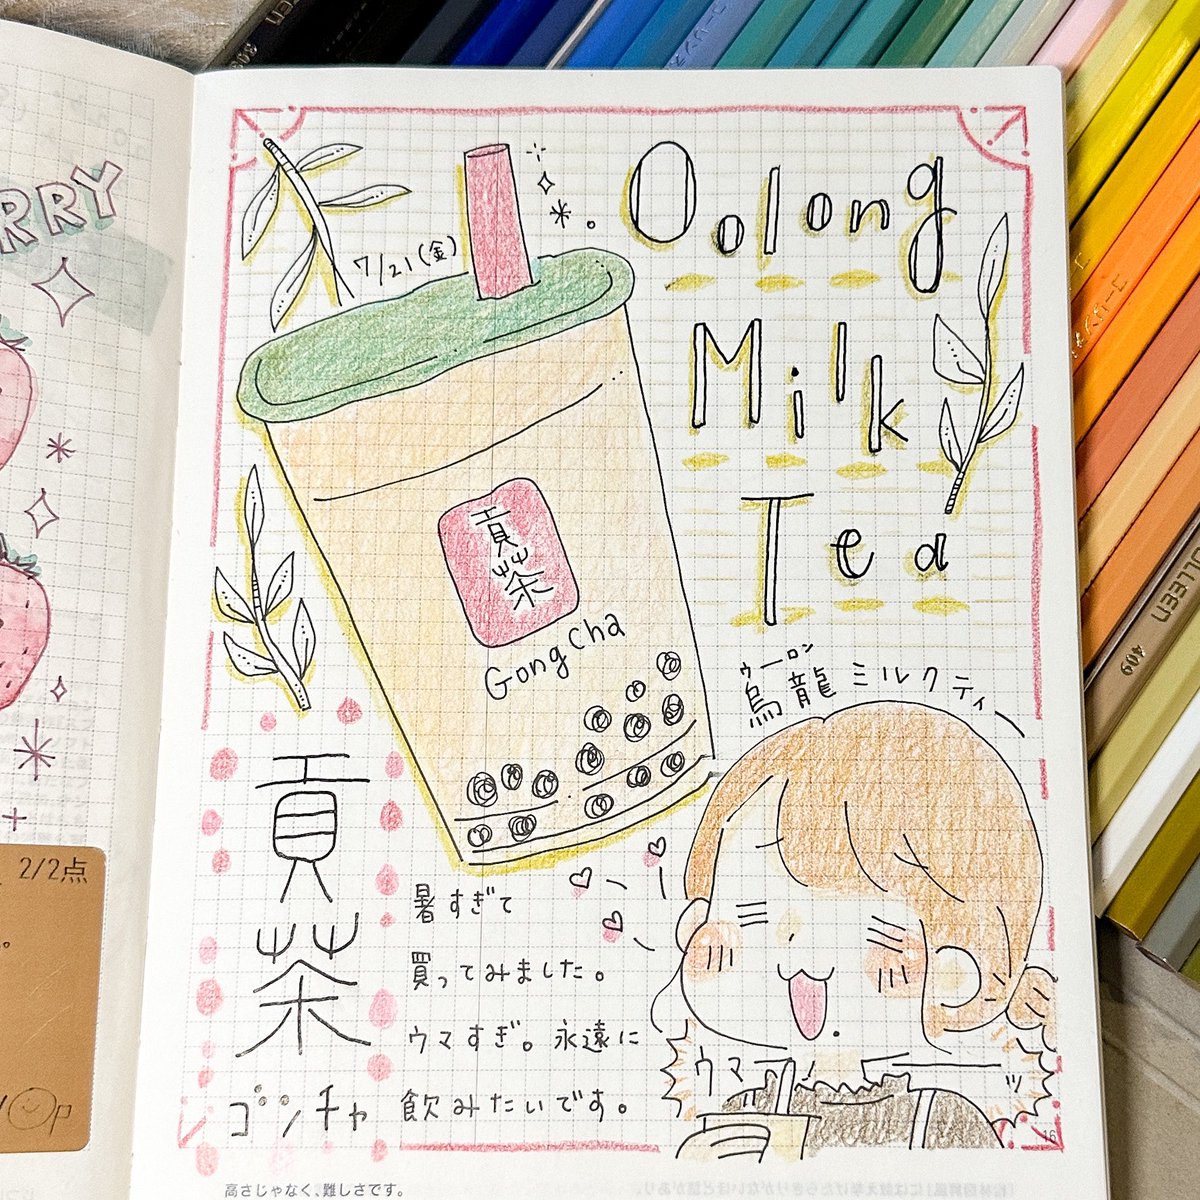 RRY
2/2点
7/21(金)
Oolong
Milk
Tea
貢茶
Gong cha
ウーロン
烏龍ミルクティ
貢茶
ゴンチャ
暑すぎて
買ってみました。
ウマすぎ。永遠に
飲みたいです。
ウマーーッ
16
高さじゃなく、難しさです。
COLLEEN
409